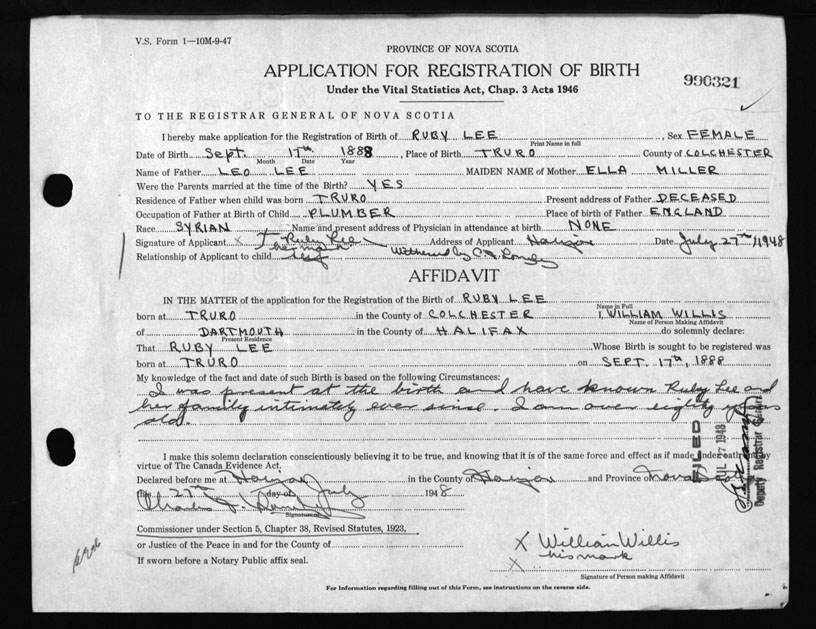 V.S. Form 1—10M-9-47
PROVINCE OF NOVA SCOTIA
APPLICATION FOR REGISTRATION OF BIRTH
Under the Vital Statistics Act, Chap. 3 Acts 1946
990321
TO THE REGISTRAR GENERAL OF NOVA SCOTIA
I hereby make application for the Registration of Birth of RUBY LEE, Sex FEMALE
Print Name in full
Date of Birth Sept. 17th 1888, Place of Birth TRURO County of COLCHESTER
Month Date Year
Name of Father LEO LEE MAIDEN NAME of Mother ELLA MILLER
Were the Parents married at the time of the Birth? YES
Residence of Father when child was born TRURO Present address of Father DECEASED
Occupation of Father at Birth of Child PLUMBER Place of birth of Father ENGLAND
Race SYRIAN Name and present address of Physician in attendance at birth NONE
Signature of Applicant X Ruby Lee Address of Applicant Halifax Date July 27th/1948
her mark
Relationship of Applicant to child self Witnessed by C.J.
AFFIDAVIT
IN THE MATTER of the application for the Registration of the Birth of RUBY LEE
Name in Full
born at TRURO in the County of COLCHESTER I, WILLIAM WILLIS
Name of Person Making Affidavit
of DARTMOUTH in the County of HALIFAX do solemnly declare:
Present Residence
That RUBY LEE Whose Birth is sought to be registered was
born at TRURO on SEPT. 17th, 1888
My knowledge of the fact and date of such Birth is based on the following Circumstances:
I was present at the birth and have known Ruby Lee and
her family intimately ever since. I am over eighty years
old.
I make this solemn declaration conscientiously believing it to be true, and knowing that it is of the same force and effect as if made under oath by
virtue of The Canada Evidence Act.
Declared before me at Halifax in the County of Halifax and Province of Nova Scotia
this 27th day of July 1948
Charles J.
Signature of
Commissioner under Section 5, Chapter 38, Revised Statutes, 1923,
or Justice of the Peace in and for the County of
If sworn before a Notary Public affix seal.
X William Willis
X his mark
Signature of Person making Affidavit
For Information regarding filling out of this Form, see instructions on the reverse side.
FILED
JUL 27 1948
Deputy Registrar General